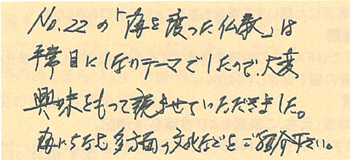 No.22の「海を渡った仏教」は
平常目にしないテーマでしたので、大変
興味をもって読ませていただきました。
海にちなむ多方面の文化などをご紹介下さい。